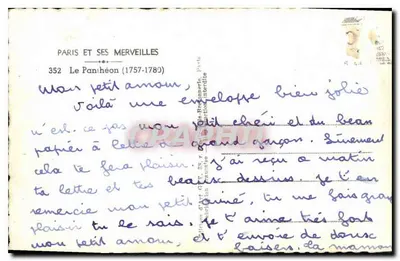 PARIS ET SES MERVEILLES
352 Le Panthéon (1757-1780)
Mon petit amour,
Voilà une enveloppe bien jolie
n'est-ce pas mon petit chéri et du beau
papier à lettre de grand garçon. Sûrement
cela te fera plaisir. J'ai reçu ce matin
ta lettre et tes beaux dessins. Je t'en
remercie mon petit aimé, tu me fais grand
plaisir tu le sais. Je t'aime très fort
mon petit amour, et t'envoie de doux
baisers. ta maman